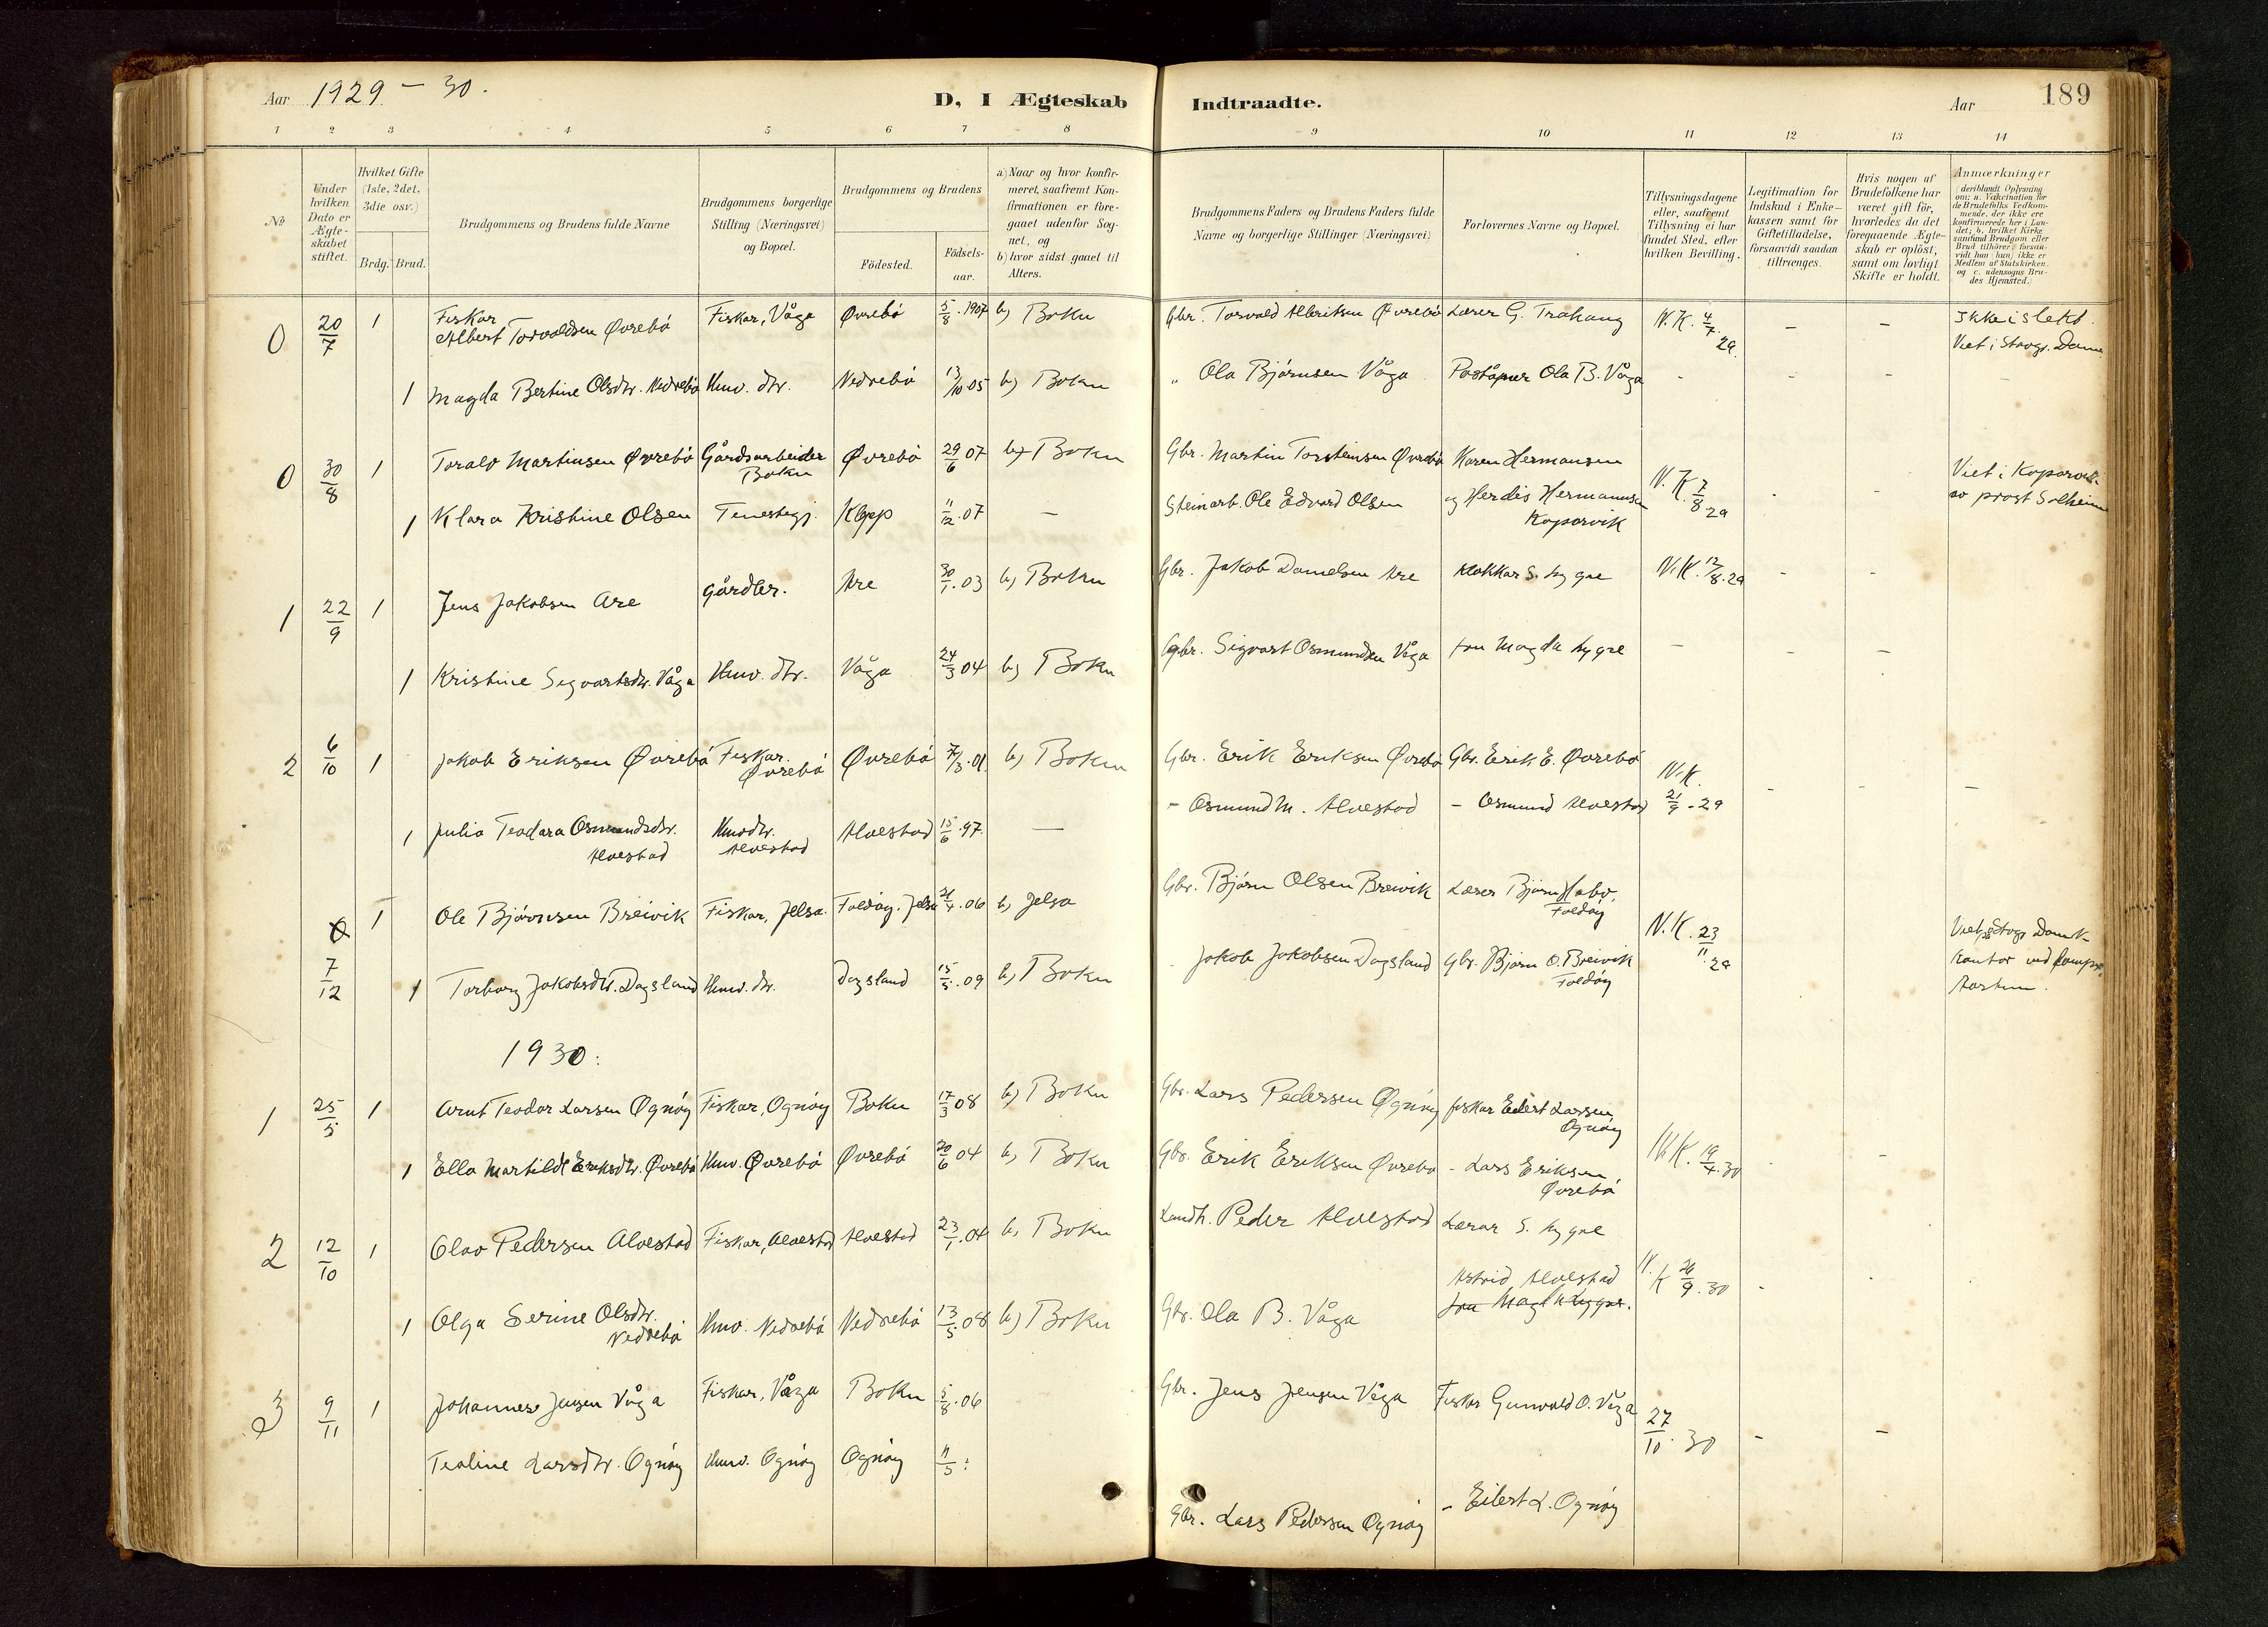 Aar 1929 - 30.
D, I Ægteskab
Indtraadte.
Aar
189
1 2 3 4 5 6 7 8 9 10 11 12 13 14
№
Under hvilken Dato er Ægteskabet stiftet.
Hvilket Gifte (1ste, 2det, 3die osv.)
Brdg. Brud.
Brudgommens og Brudens fulde Navne
Brudgommens borgerlige Stilling (Næringsvei) og Bopæl.
Brudgommens og Brudens
Fødested.
Fødselsaar.
a) Naar og hvor konfirmeret, saafremt Konfirmationen er foregaaet udenfor Sognet, og
b) hvor sidst gaaet til Alters.
Brudgommens Faders og Brudens Faders fulde Navne og borgerlige Stillinger (Næringsvei)
Forlovernes Navne og Bopæl.
Tillysningsdagene eller, saafremt Tillysning ei har fundet Sted, efter hvilken Bevilling.
Legitimation for Indskud i Enkekassen samt for Giftetilladelse, forsaavidt saadan tiltrænges.
Hvis nogen af Brudefolkene har været gift før, hvorledes da det foregaaende Ægteskab er opløst, samt om lovligt Skifte er holdt.
Anmærkninger
(deriblandt Oplysning om: a. Vakcination for de Brudefolks Vedkommende, der ikke ere konfirmerede her i Landet; b. hvilket Kirkesamfund Brudgom eller Brud tilhører, forsaavidt han (hun) ikke er Medlem af Statskirken, og c. udensogns Brudes Hjemsted.)
0 20/7 1 Fiskar Albert Torvaldsen Øvrebö Fiskar, Våga Øvrebö 5/8.1907 b) Bokn Gbr. Torvald Albriktsen Øvrebö Lærer G. N.K. 4/7.29. - - Ikke i slekt. Viet i Stavgr. Dom
1 Magda Bertine Olsdtr. Nedrebö Husv. dtr. Nedrebö 13/10 05 b) Bokn " Ola Björnsen Våga Poståpner Ola B. Våga - - - -
0 30/8 1 Toralv Martinsen Øvrebö Gårdsarbeider Bokn Øvrebö 29/6 07 b) Bokn Gbr. Martin Torsteinsen Øvrebö Karen Hermansen N.K. 7/8 29 - - Viet i Kopervik av prost Solheim
1 Klara Kristine Olsen Tenestegj. Klepp 11/12.07 - Steinarb. Ole Edvard Olsen og Herdis Hermansen Kopervik
1 22/9 1 Jens Jakobsen Are gårdbr. Are 30/1.03 b) Bokn Gbr. Jakob Danielsen Are Klokkar S. Hygre N.K. 12/8.29 - -
1 Kristine Sigvartsdtr. Våga Husv. dtr. Våga 24/3 04 b) Bokn Gbr. Sigvart Osmundsen Våga fru Magda Hygre - - -
2 6/10 1 Jakob Eriksen Øvrebö Fiskar. Øvrebö Øvrebö 7/3.01 b) Bokn Gbr. Erik Eriksen Øvrebö Gbr. Erik E. Øvrebö N.K. 21/9 - 29 - - -
1 Julia Teodora Osmundsdtr. Alvestad Husvdtr. Alvestad Alvestad 15/6.97. - - Osmund M. Alvestad - Osmund Alvestad
0 7/12 1 Ole Björnsen Breivik Fiskar, Jelsa. Foldöy. Jelsa .06 b) Jelsa Gbr. Björn Olsen Breivik Lærer Björn Foldöy N.K. 23/11.29
1 Torborg Jakobsdtr. Dagsland Husv. dtr. Dagsland 15/5.09 b) Bokn Jakob Jakobsen Dagsland Gbr. Björn O. Breivik Foldöy
1930:
1 25/5 1 Arnt Teodor Larsen Ognöy Fiskar, Ognöy Bokn 17/3 08 b) Bokn Gbr. Lars Pedersen Ognöy fiskar Eilert Larsen, Ognöy N.K. 19/4.30 - -
1 Ella Martilde Eriksdtr. Øvrebö Husv. Øvrebö Øvrebö 20/6 04 b) Bokn Gbr. Erik Eriksen Øvrebö - Lars Eriksen Øvrebö
2 12/10 1 Olav Pedersen Alvestad Fiskar, Alvestad Alvestad 23/1.04 b) Bokn Landh. Peder Alvestad Lærar S. Hygre N.K 26/9.30 -
1 Olga Serine Olsdtr. Nedrebö Husv. Nedrebö Nedrebö 13/5.08 b) Bokn Gbr. Ola B. Våga Astrid Alvestad
3 9/11 1 Johannes Jensen Våga Fiskar, Våga Bokn 5/8.06 Gbr. Jens Jensen Våga Fiskar Gunvald O. Våga 27/10.30 - -
Tealine Larsdtr. Ognöy Husv. Ognöy Ognöy 11/5: Gbr. Lars Pedersen Ognöy - Eilert L. Ognöy